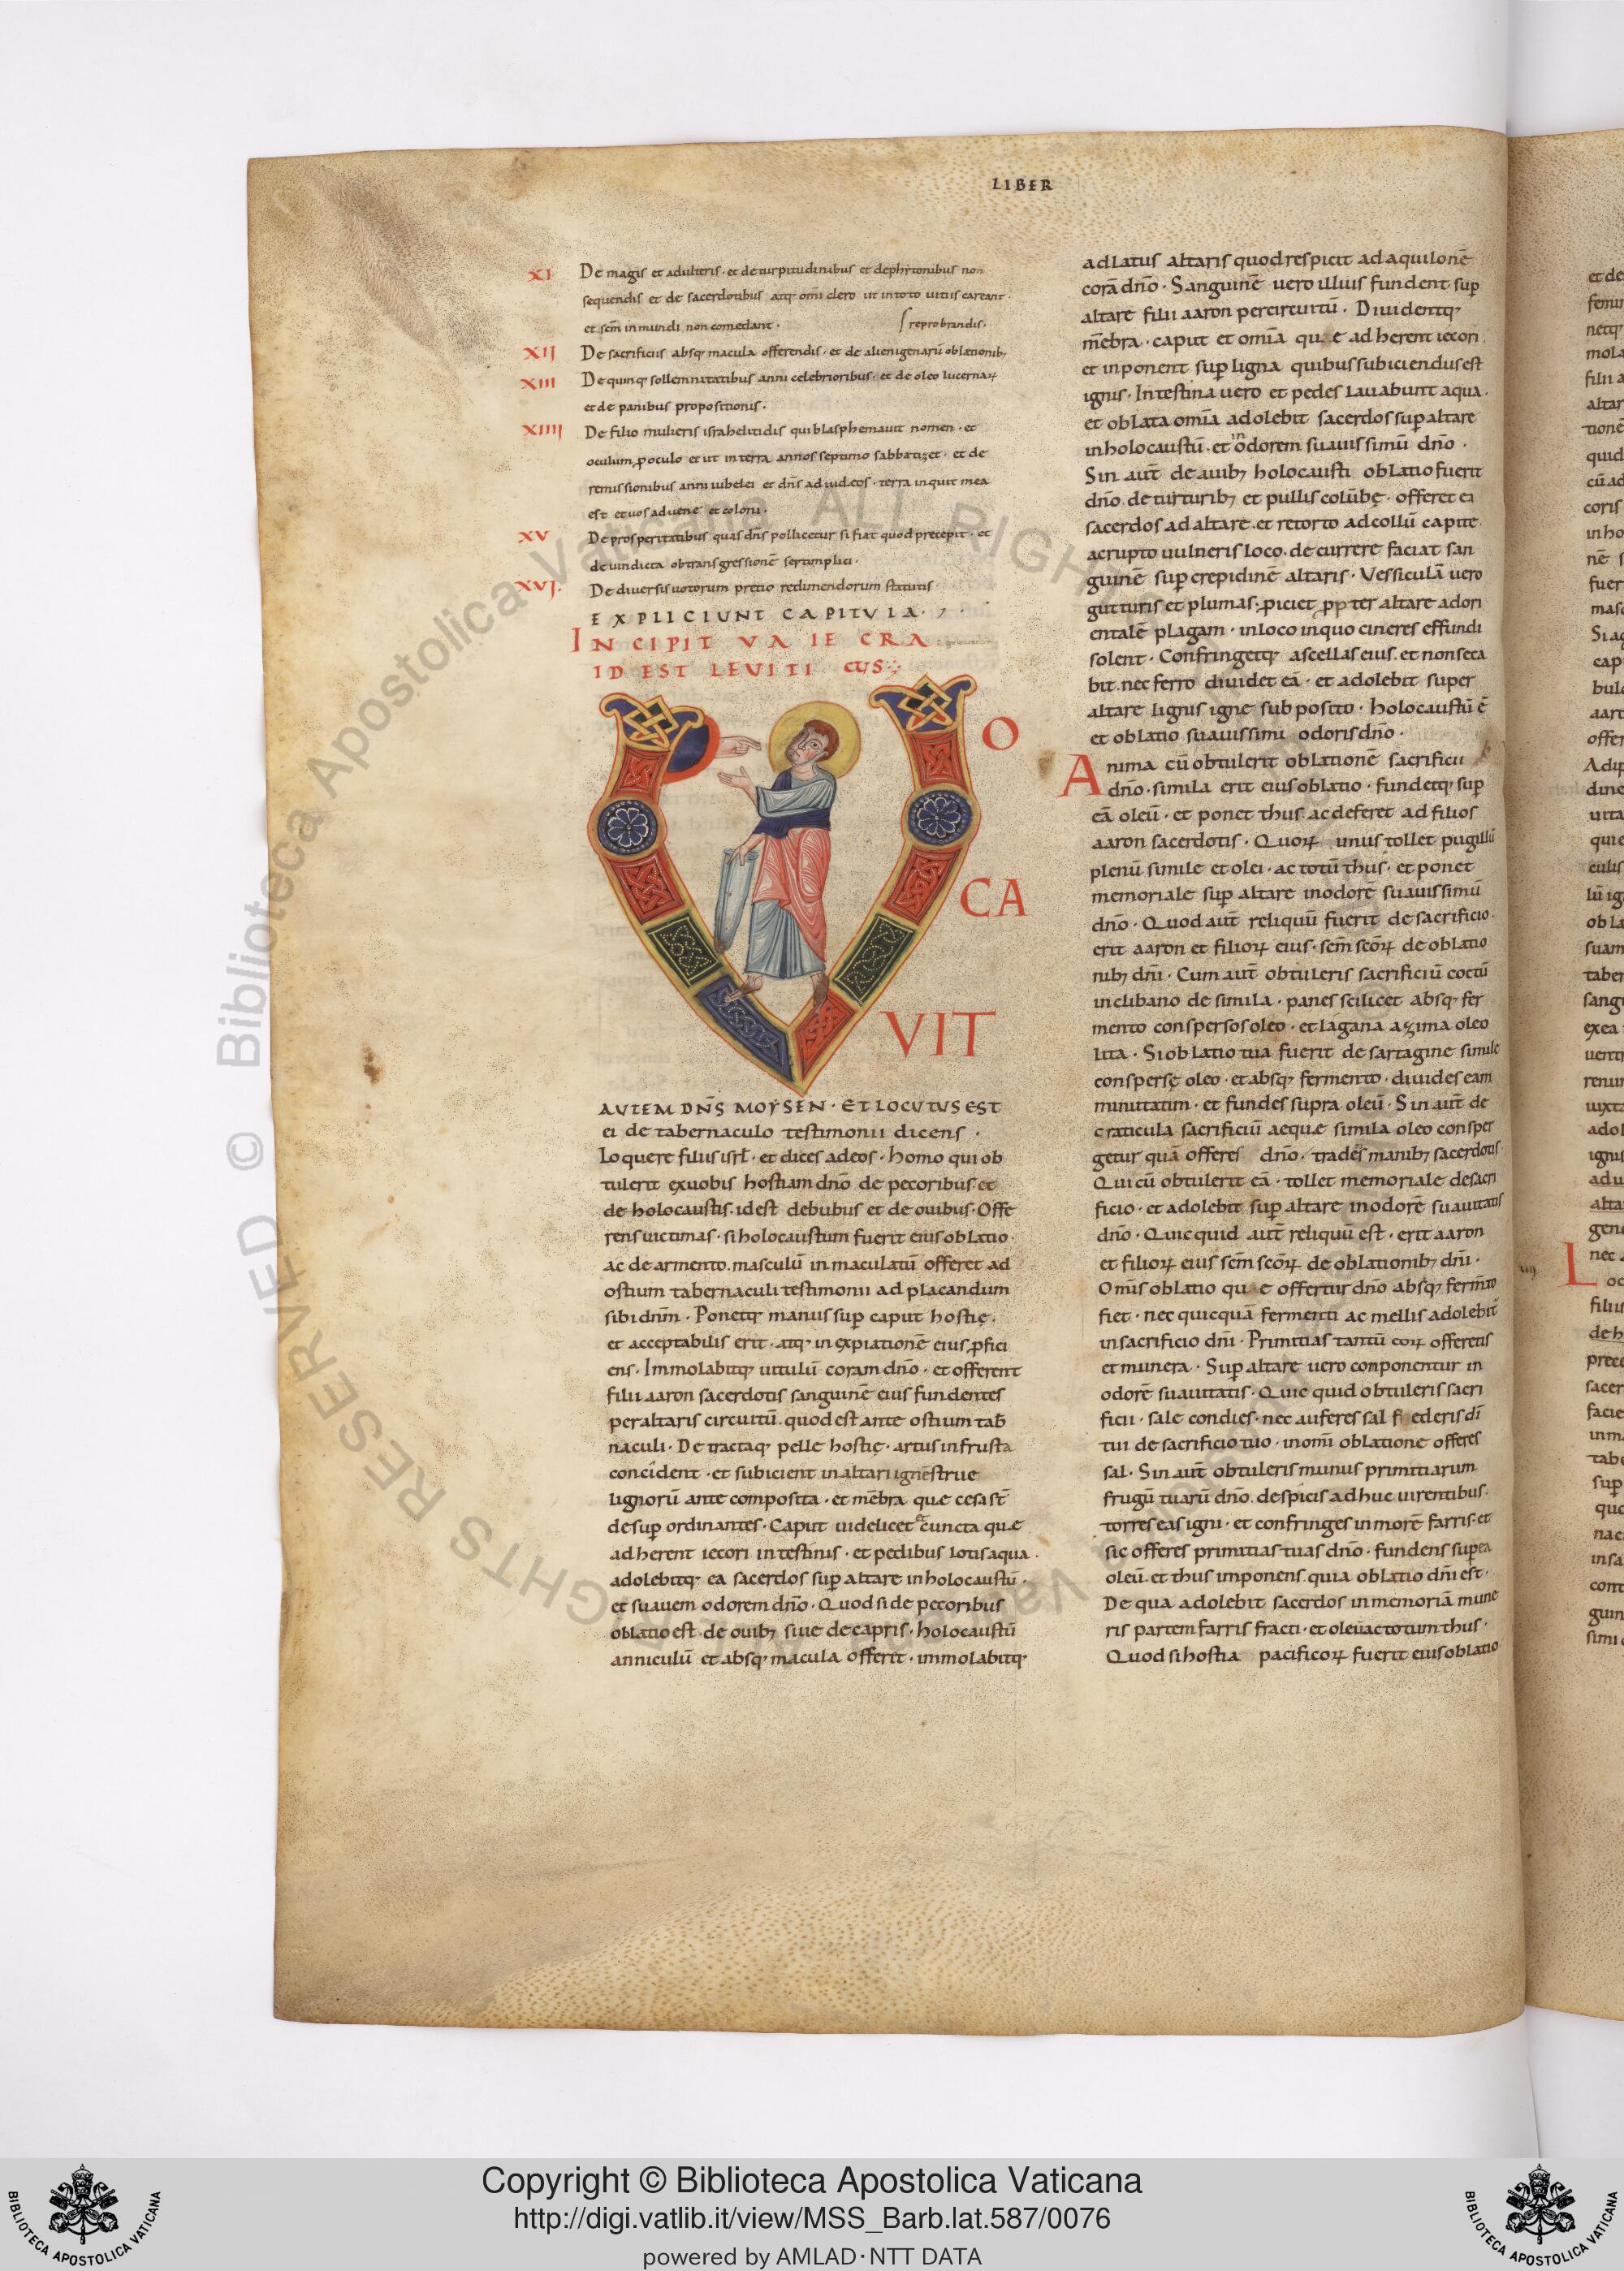 LIBER
XI De magis et adulteris · et deturpitudinibus et dephitonibus non
sequendis et de sacerdotibus atq; omi clero ut intoto uitiis careant ·
et scm inmundi non comedant · reprobrandis ·
XII De sacrificiis absq; macula offerendis · et de alienigenarū oblationib;
XIII De quinq; sollemnitatibus anni celebrioribus · et de oleo lucernaꝝ
et de panibus propositionis ·
XIIII De filio mulieris israhelitidis qui blasphemauit nomen · et
oculum ꝓ oculo et ut interra annos septimo sabbatizet · et de
remissionibus anni iubelei et dn̄s ad iudeos · terra inquit mea
est et uos aduene et coloni ·
XV De prosperitatibus quas dn̄s pollicetur si fiat quod precepit · et
de uindicta ob transgressionē septimplici ·
XVI. De diuersis uotorum precio redimendorum statutis ·
EXPLICIUNT CAPITVLA · 7 ·
INCIPIT VAIECRA
ID EST LEVITICUS
VO
CA
VIT
AVTEM DN̄S MOYSEN · ET LOCVTVS EST
ei de tabernaculo testimonii dicens ·
Loquere filiis isrl̄ · et dices ad eos · homo qui ob
tulerit exuobis hostiam dn̄o de pecoribus · et
de holocaustis · idest debubus et de ouibus · Offe
rens uictimas · si holocaustum fuerit eius oblatio ·
ac de armento · masculū inmaculatū offeret ad
ostium tabernaculi testimonii ad placandum
sibi dn̄m · Ponetq; manus sup̄ caput hostię ·
et acceptabilis erit · atq; in expiationē eius ꝓfici
ens · Immolabitq; uitulū coram dn̄o · et offerent
filii aaron sacerdotis sanguinē eius fundentes
per altaris circuitū · quod est ante ostium tab̄
naculi · Detractaq; pelle hostię · artus infrusta
concident · et subicient in altari ignē strue
lignorū ante composita · et mēbra que cesa st̄
desup̄ ordinantes · Caput uidelicet et cuncta quæ
adherent iecori intestinis · et pedibus lotis aqua ·
adolebitq; ea sacerdos sup̄ altare inholocaustū ·
et suauem odorem dn̄o · Quod si de pecoribus
oblatio est · de ouib; siue de capris · holocaustū
anniculū et absq; macula offeret · immolabitq;
ad latus altaris quod respicit ad aquilonē
corā dn̄o · Sanguinē uero illius fundent sup̄
altare filii aaron per circuitū · Diuidentq;
m̄ebra · caput et omīa quae adherent iecori ·
et inponent sup̄ ligna quibus subiciendus est
ignis · Intestina uero et pedes lauabunt aqua ·
et oblata omīa adolebit sacerdos sup̄ altare
inholocaustū · et in odorem suauissimū dn̄o ·
Sin aut̄ de auib; holocausti oblatio fuerit
dn̄o · de turturib; et pullis colūbę · offeret ei
sacerdos ad altare · et retorto ad collū capite ·
ac rupto uulneris loco · decurrere faciat san
guinē sup̄ crepidinē altaris · Vessiculā uero
gutturis et plumas · ꝓiciet propter altare ad ori
entalē plagam · in loco in quo cineres effundi
solent · Confringetq; ascellas eius · et non seca
bit · nec ferro diuidet eā · et adolebit super
altare lignis igne subposito · holocaustū ē
et oblatio suauissimi odoris dn̄o ·
Anima cū obtulerit oblationē sacrificii
dn̄o · simila erit eius oblatio · fundetq; sup̄
eā oleū · et ponet thus · ac deferet ad filios
aaron sacerdotis · Quoꝝ unus tollet pugillū
plenū simile et olei · ac totū thus · et ponet
memoriale sup̄ altare inodorē suauissimū
dn̄o · Quod aut̄ reliquū fuerit de sacrificio ·
erit aaron et filioꝝ eius · scm̄ scōꝝ de oblatio
nib; dn̄i · Cum aut̄ obtuleris sacrificiū coctū
inclibano de simila · panes scilicet absq; fer
mento conspersos oleo · et lagana azima oleo
lita · Si oblatio tua fuerit de sartagine simile
conspersę oleo · et absq; fermento · diuides eam
minutatim · et fundes supra oleū · Sin aut̄ de
craticula sacrificiū aeque simila oleo consper
getur quā offeres dn̄o · trades manib; sacerdotis ·
Qui cū obtulerit eā · tollet memoriale de sacri
ficio · et adolebit sup̄ altare inodorē suauitatis
dn̄o · Quicquid aut̄ reliquū est · erit aaron
et filioꝝ eius scm̄ scōꝝ de oblationib; dn̄i ·
Omīs oblatio quae offertur dn̄o absq; ferm̄to
fiet · nec quicquā fermenti ac mellis adolebit̄
in sacrificio dn̄i · Primitias tantū eoꝝ offeretis
et munera · Sup̄ altare uero componentur in
odorē suauitatis · Quicquid obtuleris sacri
ficii · sale condies · nec auferes sal foederis dī
tui de sacrificio tuo · in omī oblatione offeres
sal · Sin aut̄ obtuleris munus primitiarum
frugū tuarū dn̄o · de spicis adhuc uirentibus ·
torres eas igni · et confringes in morē farris · et
sic offeres primitias tuas dn̄o · fundens sup̄ ea
oleū · et thus imponens · quia oblatio dn̄i est ·
De qua adolebit sacerdos in memoriā mune
ris partem farris fracti · et oleū ac totum thus ·
Quod si hostia pacificoꝝ fuerit eius oblatio
© Biblioteca Apostolica Vaticana ALL RIGHTS RESERVED
Copyright © Biblioteca Apostolica Vaticana
http://digi.vatlib.it/view/MSS_Barb.lat.587/0076
powered by AMLAD·NTT DATA
BIBLIOTECA APOSTOLICA VATICANA
BIBLIOTECA APOSTOLICA VATICANA